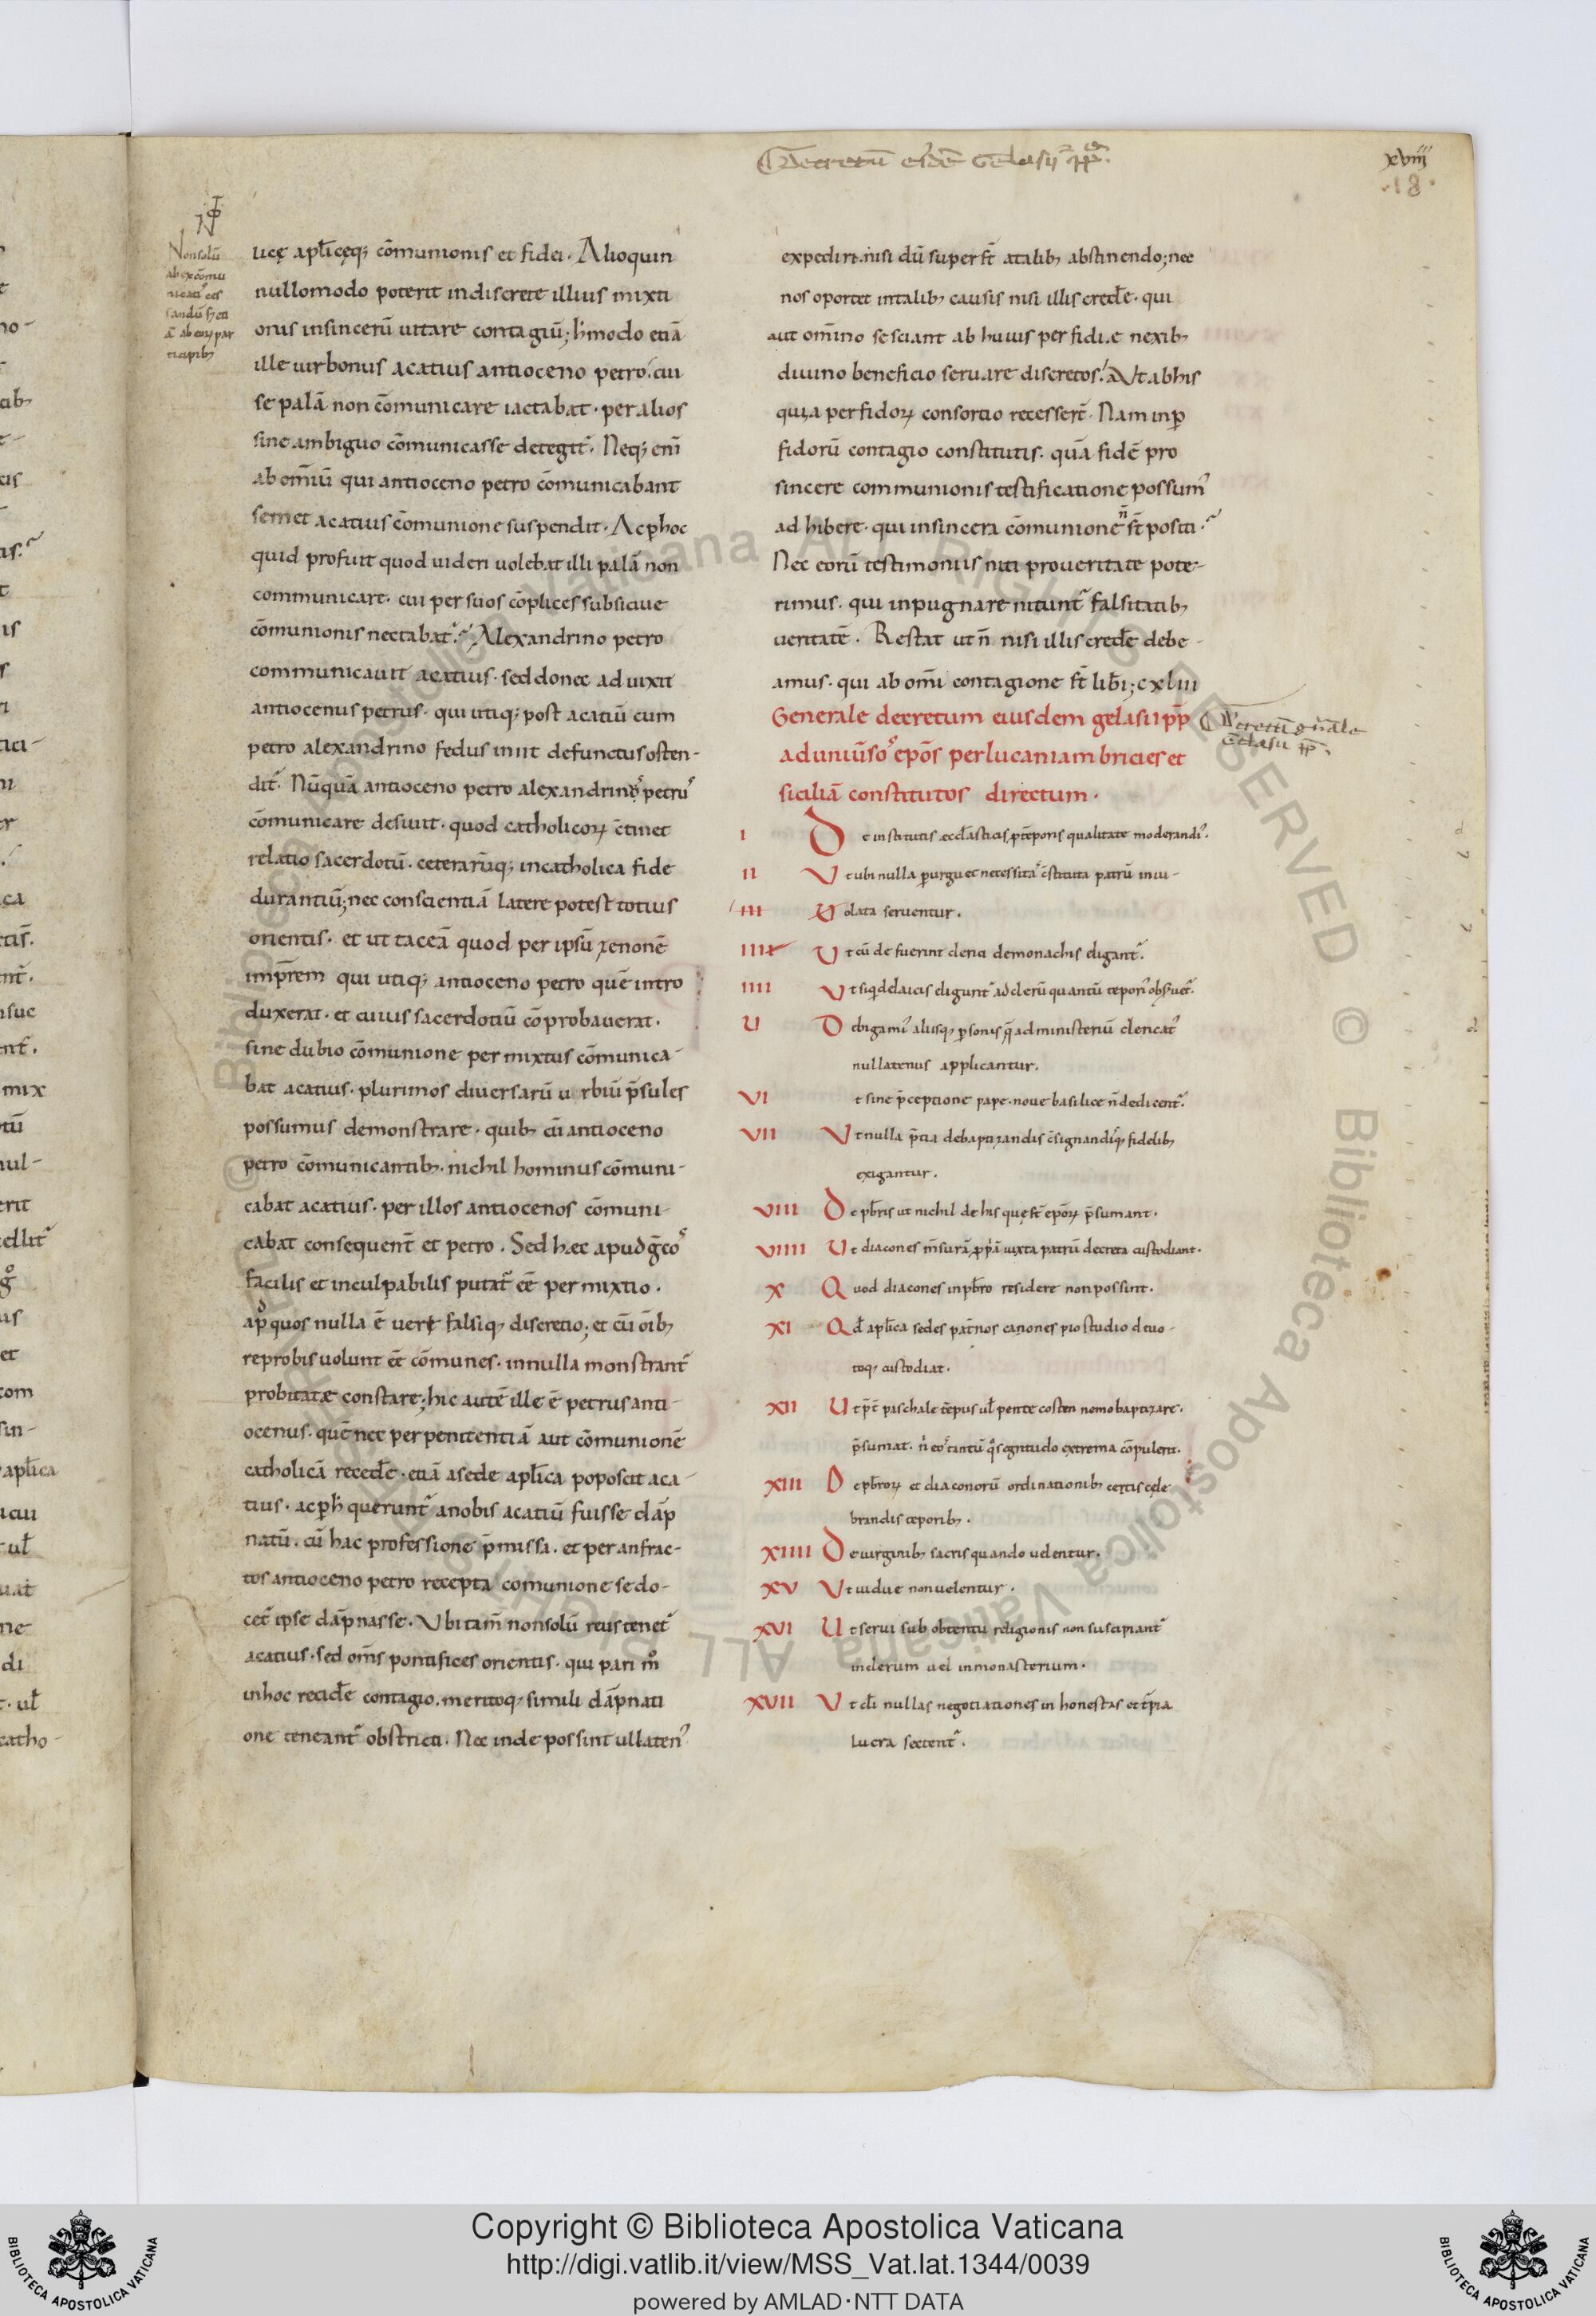 Decretū eiusdē Gelasii pp.
xviii
.18.
Nonsolū
ab excōmu
nicatis ces
sandū s; eti
ā ab eoꝝ par
ticipibꝫ
ucę apl̄icęqꝫ cōmunionis et fidei. Alioquin
nullomodo poterit indiscrete illius mixti
onis insincerū uitare contagiū; h̄modo etiā
ille uir bonus acatius antioceno petro. cui
se palā non cōmunicare iactabat. per alios
sine ambiguo cōmunicasse detegit̄. Neqꝫ eni̅
ab om̄iū qui antioceno petro cōmunicabant
semet acatius cōmunione suspendit. Ac ꝑ hoc
quid profuit quod uideri uolebat illi palā non
communicare. cui per suos cōplices subsiciue
cōmunionis nectabat̄. Alexandrino petro
communicauit acatius. sed donec aduixit
antiocenus petrus. qui utiqꝫ post acatiū cum
petro alexandrino fedus iniit defunctus osten-
dit̄. Nūquā antioceno petro alexandrinꝰ petrꝰ
cōmunicare desiuit. quod catholicoꝝ c̄tinet
relatio sacerdotū. ceterarūqꝫ in catholica fide
durantiū; nec conscientiā latere potest totius
orientis. et ut taceā quod per ipsū zenonē
impr̄em qui utiqꝫ antioceno petro quē intro
duxerat. et cuius sacerdotiū cōprobauerat.
sine dubio cōmunione permixtus cōmunica-
bat acatius. plurimos diuersarū urbiū p̄sules
possumus demonstrare. quibꝫ cū antioceno
petro cōmunicantibꝫ. nichil hominus cōmuni-
cabat acatius. per illos antiocenos cōmuni-
cabat consequent̄ et petro. Sed hæc apud ḡcoꝰ
facilis et inculpabilis putat̄ eē permixtio.
apd quos nulla ē ueri falsiqꝫ discretio; et cū oībꝫ
reprobis uolunt eē cōmunes. in nulla monstrant̄
probitate constare; hic autē ille ē petrus anti-
ocenus. quē nec per penitentiā aut cōmunionē
catholicā recedē. etiā a sede apl̄ica poposcit aca-
tius. ac ꝑ h̄ querunt̄ a nobis acatiū fuisse dāp
natū. cū hac professione p̄missa. et per anfrac-
tos antioceno petro recepta comunione se do-
cet̄ ipse dāpnasse. Vbi tam̄ nonsolū reus tenet̄
acatius. sed om̄s pontifices orientis. qui pari m̊
in hoc recidēr contagio. meritoqꝫ simili dāpnati
one teneant̄ obstricti. Nec inde possint ullatenꝰ
expediri. nisi dū super st̄ a talibꝫ abstinendo; nec
nos oportet in talibꝫ causis nisi illis credēr. qui
aut om̄ino se sciant ab huius perfidiæ nexibꝫ
diuino beneficio seruare discretos. aut ab his
quia perfidoꝝ consortio recesser̄t. Nam in ꝑ
fidorū contagio constitutis. quā fidē pro
sincere communionis testificatione possumꝰ
adhibere. qui in sincera cōmunione n̄ st̄ positi.
Nec eorū testimoniis niti pro ueritate pote-
rimus. qui inpugnare nitunt̄ falsitatibꝫ
ueritatē. Restat ut n̄ nisi illis credēr debe-
amus. qui ab om̄i contagione st̄ lib̄i; cxliii
Generale decretum eiusdem gelasii pp̄
ad uniūsoꝰ ep̄os per lucaniam bricies et
siciliā constitutos directum.
Decretū gn̄ale
Gelasii pp̄.
I De institutis æccl̄asticis, ꝑ tēporis qualitate moderandiꝰ.
II Vt ubi nulla ꝑurguet necessitaꝰ c̄stituta patrū inui-
III olata seruentur.
IIII Vt cū defuerint clerici de monachis eligant̄.
IIII Vt siqi de laicis eligunt̄ ad clerū quantū teporiꝰ obseruet̄.
V De bigamiꝰ aliisqꝫ ꝑsonis q̄ ad ministeriū clericatꝰ
nullatenus applicantur.
VI t sine p̄ceptione pape. noue basilice n̄ dedicent̄.
VII Vt nulla p̄tia de baptizandis c̄signandisqꝫ fidelibꝫ
exigantur.
VIII De pb̄ris ut nichil de his quę st̄ epōꝝ p̄sumant.
VIIII Vt diacones m̄surā ꝓp̄ā iuxta patrū decreta custodiant.
X Quod diacones in pb̄ro residere non possint.
XI Qd̄ apl̄ica sedes pat̄nos canones pio studio deuo-
toqꝫ custodiat.
XII Vt p̄t paschale tēpus ul̄ pentecosten nemo baptizare.
p̄sumat. n̄ eoꝰ tantū qͦs egritudo extrema cōpulerit.
XIII De pb̄roꝝ et diaconorū ordinationibꝫ certis cęle
brandis teporibꝫ.
XIIII De uirginibꝫ sacris quando uelentur.
XV Vt uidue non uelentur.
XVI Vt serui sub obtentu religionis non suscipiant̄
in clerum uel in monasterium.
XVII Vt cl̄i nullas negotiationes in honestas et t̄pia
lucra sectent̄.
Copyright © Biblioteca Apostolica Vaticana
http://digi.vatlib.it/view/MSS_Vat.lat.1344/0039
powered by AMLAD·NTT DATA